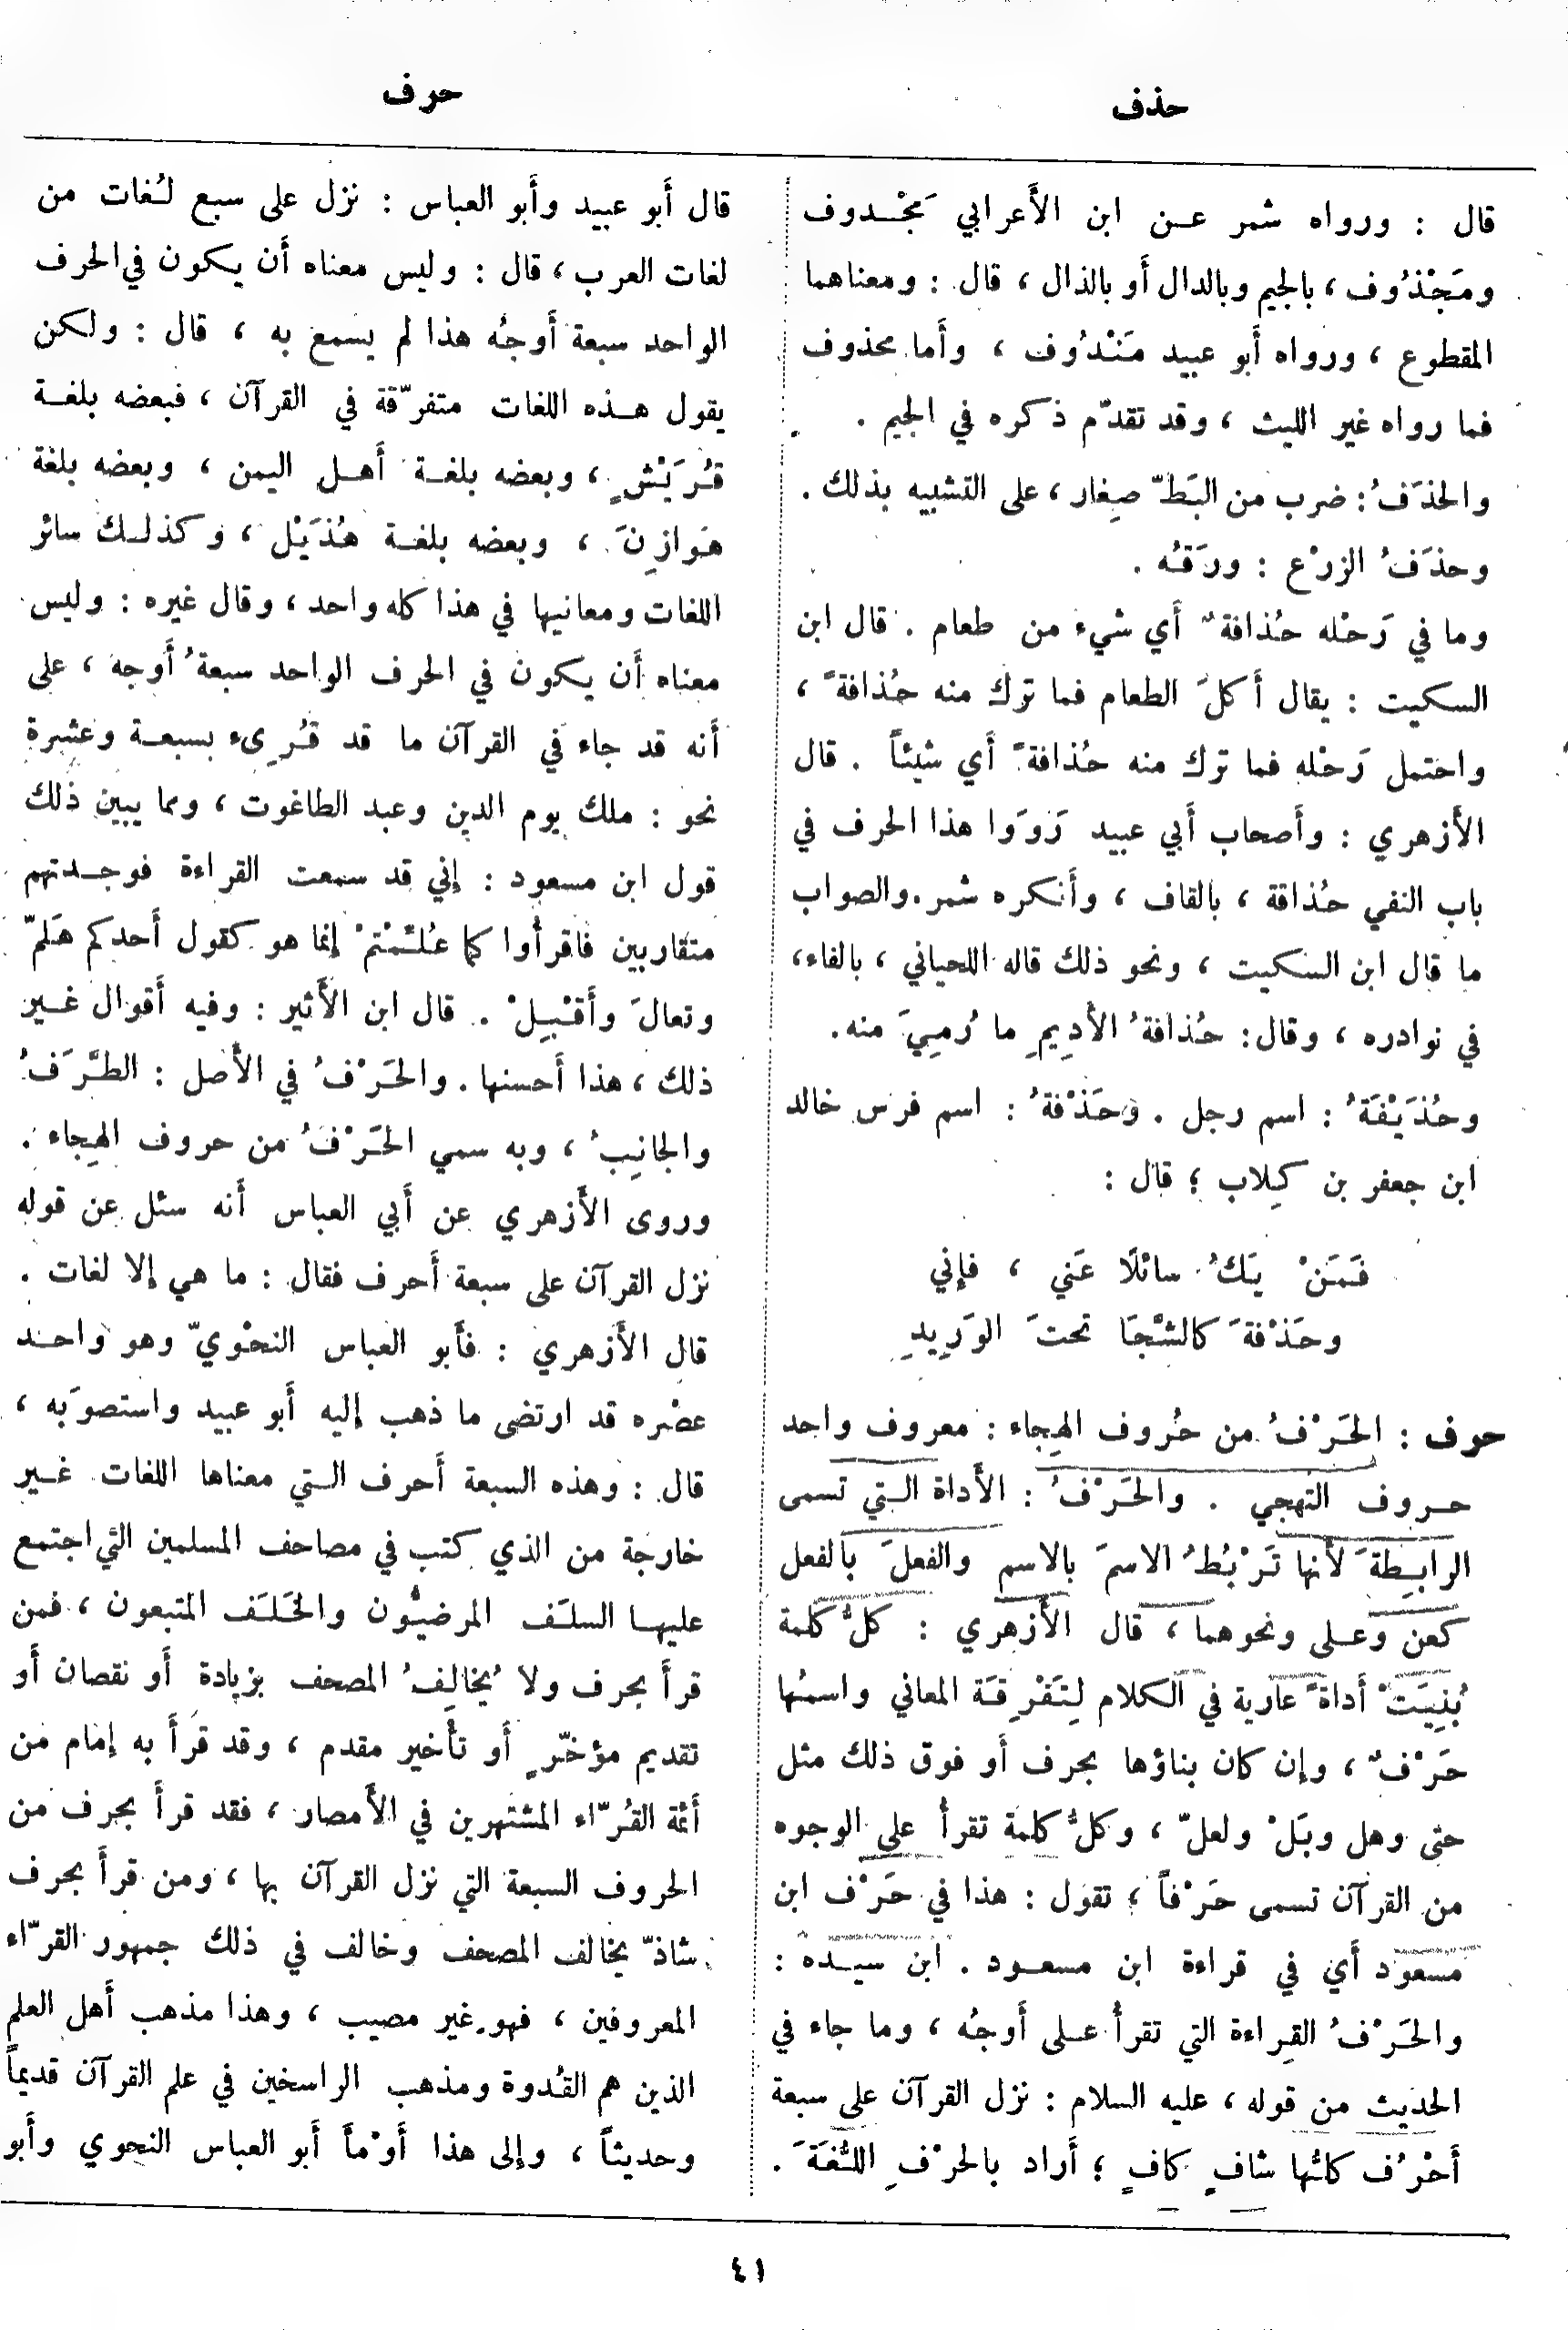 حذف
حرف
قال : ورواه شمر عن ابن الأَعرابي مَجْدوف
ومَجْذُوف ، بالجيم وبالدال أَو بالذال ، قال : ومعناهما
المقطوع ، ورواه أَبو عبيد مَنْدُوف ، وأَما محذوف
فما رواه غير الليث ، وقد تقدّم ذكره في الجيم .
والحذَفُ : ضرب من البَطّ صِغار ، على التشبيه بذلك .
وحذَفُ الزرْع : ورَقُه .
وما في رَحْله حُذافةٌ أَي شيء من طعام . قال ابن
السكيت : يقال أَكلَ الطعام فما ترك منه حُذافةً ،
واحتمل رَحْله فما ترك منه حُذافةً أَي شيئاً . قال
الأَزهري : وأَصحاب أَبي عبيد رَووَا هذا الحرف في
باب النفي حُذاقة ، بالقاف ، وأَنكره شمر . والصواب
ما قال ابن السكيت ، ونحو ذلك قاله اللحياني ، بالفاء ،
في نوادره ، وقال : حُذافةُ الأَدِيمِ ما رُمِيَ منه .
وحُذَيْفَةُ : اسم رجل . وحَذْفةُ : اسم فرس خالد
ابن جعفر بن كِلاب ؛ قال :
فَمَنْ يَكُ سائلًا عَني ، فإني
وحَذْفةَ كالشَّجَا تحتَ الوَرِيدِ
حرف : الحَرْفُ من حُروف الهِجاء : معروف واحد
حروف التهجي . والحَرْفُ : الأَداة التي تسمى
الرابِطةَ لأَنها تَرْبُطُ الاسمَ بالاسم والفعلَ بالفعل
كعن وعلى ونحوهما ، قال الأَزهري : كلُّ كلمة
بُنِيَتْ أَداةً عارية في الكلام لِتَفْرِقة المعاني واسمُها
حَرْفٌ ، وإن كان بناؤها بحرف أَو فوق ذلك مثل
حتى وهل وبَلْ ولعلّ ، وكلُّ كلمة تقرأُ على الوجوه
من القرآن تسمى حَرْفاً ، تقول : هذا في حَرْف ابن
مسعود أَي في قراءة ابن مسعود . ابن سيده :
والحَرْفُ القِراءة التي تقرأُ على أَوجُه ، وما جاء في
الحديث من قوله ، عليه السلام : نزل القرآن على سبعة
أَحْرُف كلُّها شافٍ كافٍ ؛ أَراد بالحرْفِ اللُّغَةَ .
قال أَبو عبيد وأَبو العباس : نزل على سبع لُغات من
لغات العرب ، قال : وليس معناه أَن يكون في الحرف
الواحد سبعة أَوجُه هذا لم يسمع به ، قال : ولكن
يقول هذه اللغات متفرّقة في القرآن ، فبعضه بلغة
قُرَيْشٍ ، وبعضه بلغة أَهل اليمن ، وبعضه بلغة
هَوازِنَ ، وبعضه بلغة هُذَيْل ، وكذلك سائر
اللغات ومعانيها في هذا كله واحد ، وقال غيره : وليس
معناه أَن يكون في الحرف الواحد سبعةُ أَوجه ، على
أَنه قد جاء في القرآن ما قد قُرِىء بسبعة وعشرة
نحو : ملك يوم الدين وعبد الطاغوت ، ومما يبين ذلك
قول ابن مسعود : إني قد سمعت القراءة فوجدتهم
متقاربين فاقرأُوا كما عُلِّمْتمْ إنما هو كقول أَحدكم هَلمّ
وتعالَ وأَقْبِلْ . قال ابن الأَثير : وفيه أَقوال غير
ذلك ، هذا أَحسنها . والحَرْفُ في الأَصل : الطَّرَفُ
والجانِبُ ، وبه سمي الحَرْفُ من حروف الهِجاء .
وروى الأَزهري عن أَبي العباس أَنه سئل عن قوله
نزل القرآن على سبعة أَحرف فقال : ما هي إلا لغات .
قال الأَزهري : فأَبو العباس النحْويّ وهو واحد
عصْره قد ارتضى ما ذهب إليه أَبو عبيد واستصوَبه ،
قال : وهذه السبعة أَحرف التي معناها اللغات غير
خارجة من الذي كتب في مصاحف المسلمين التي اجتمع
عليها السلَف المرضيُّون والخَلَف المتبعون ، فمن
قرأَ بحرف ولا يُخالِفُ المصحف بزيادة أَو نقصان أَو
تقديم مؤخّرٍ أَو تأْخير مقدم ، وقد قرأَ به إمام من
أَئمة القُرّاء المشتهرين في الأَمصار ، فقد قرأَ بحرف من
الحروف السبعة التي نزل القرآن بها ، ومن قرأَ بحرف
شاذّ يخالف المصحف وخالف في ذلك جمهور القرّاء
المعروفين ، فهو غير مصيب ، وهذا مذهب أَهل العلم
الذين هم القُدوة ومذهب الراسخين في علم القرآن قديماً
وحديثاً ، وإلى هذا أَوْمأَ أَبو العباس النحوي وأَبو
٤١